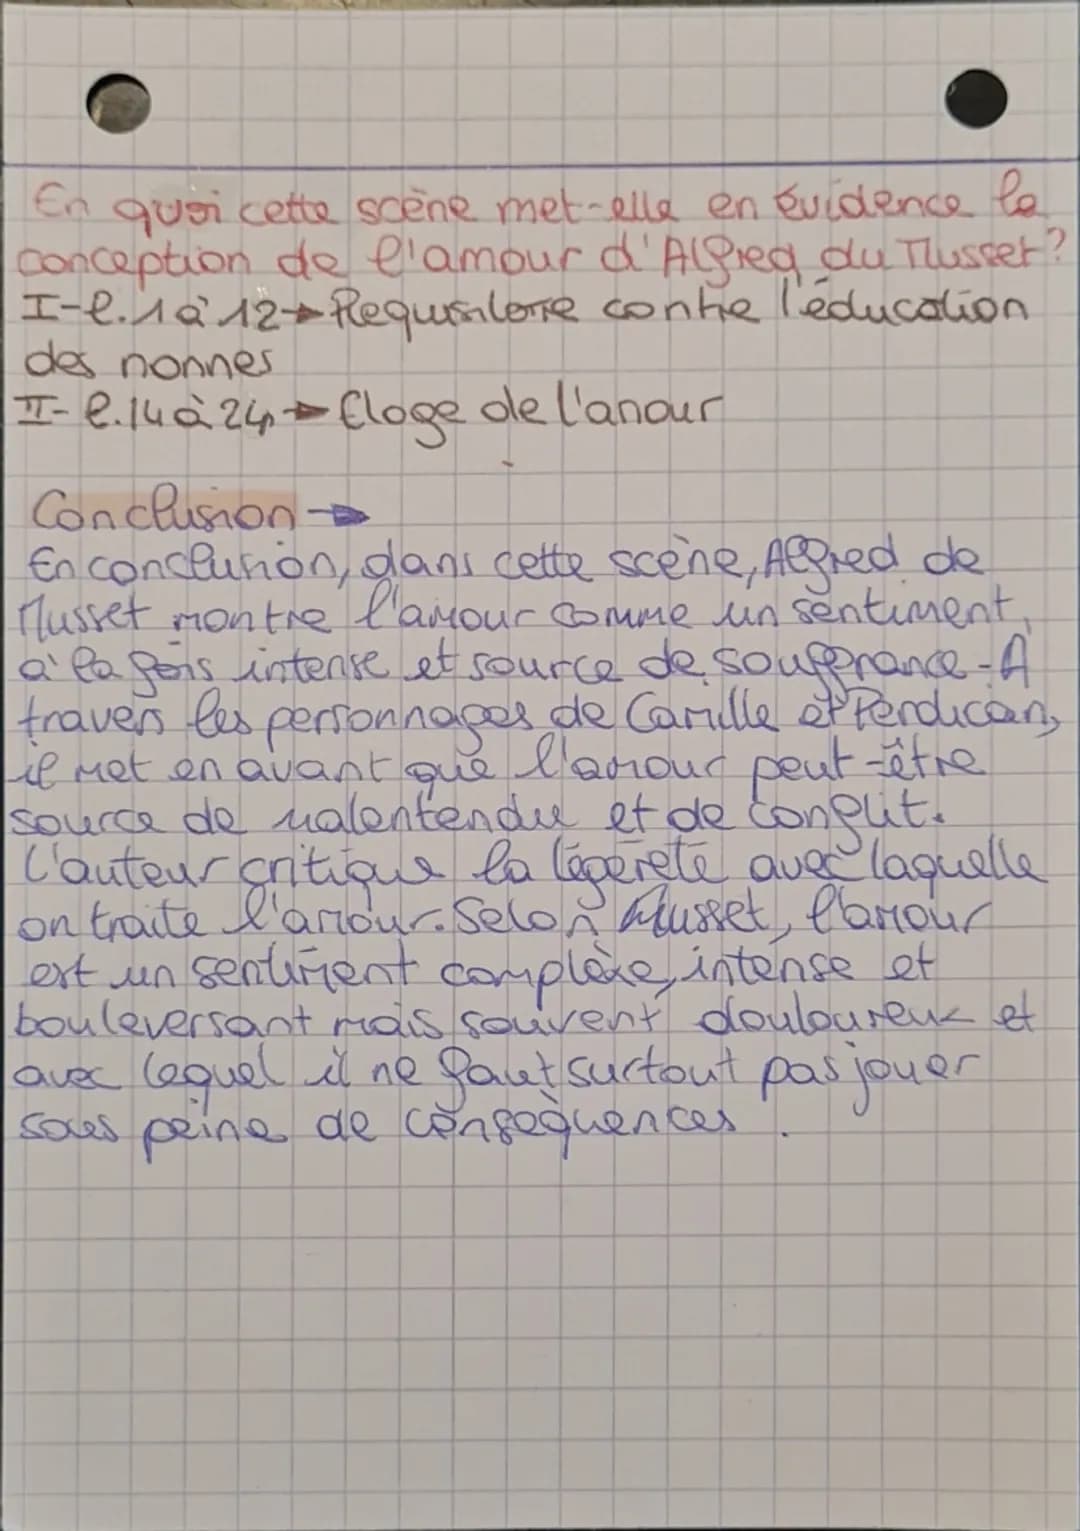 En quoi cette scène met-elle en évidence la
conception de l'amour d'Alfred du Musset?
I-l.1 à 12→Requisitoire contre l'éducation
des nonnes
II-l.14 à 24→Eloge de l'amour
Conclusion→
En conclusion, dans cette scène, Alfred de
Musset montre l'amour comme un sentiment,
à la fois intense et source de soufferance-A
travers les personnages de Camille et Perdican,
il met en avant que l'amour peut-être
source de malentendu et de conflit.
L'auteur critique la légèreté avec laquelle
on traite l'amour. Selon Musset, l'amour
est un sentiment complexe, intense et
bouleversant mais souvent douloureux et
avec lequel il ne faut surtout pas jouer
sous peine de conséquences.